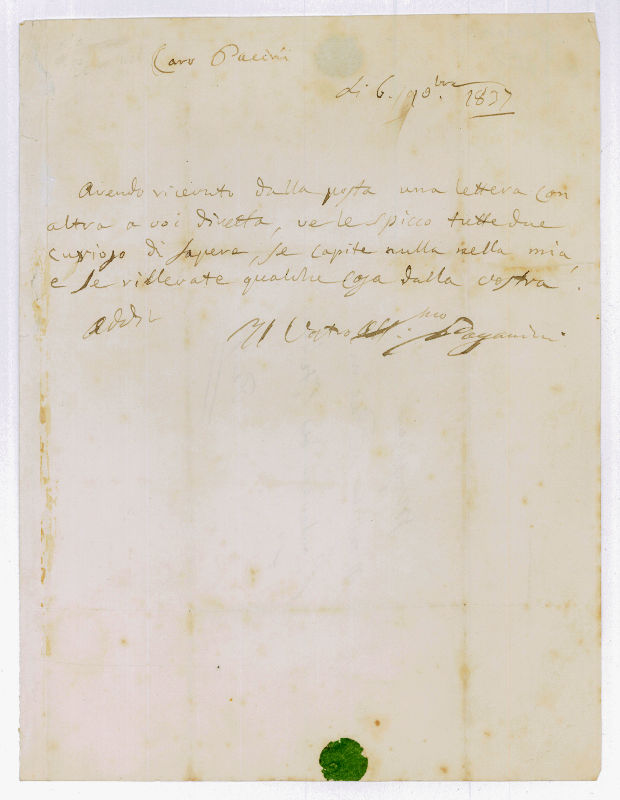 Caro Pacini
Li 6. 9bre 1837
Avendo ricevuto dalla posta una lettera con
altra a voi diretta, ve le spicco tutte due
curioso di sapere, se capite nulla nella mia
e se rillevate qualche cosa dalla vostra.
Addio
Il Vostro Aff.mo Paganini